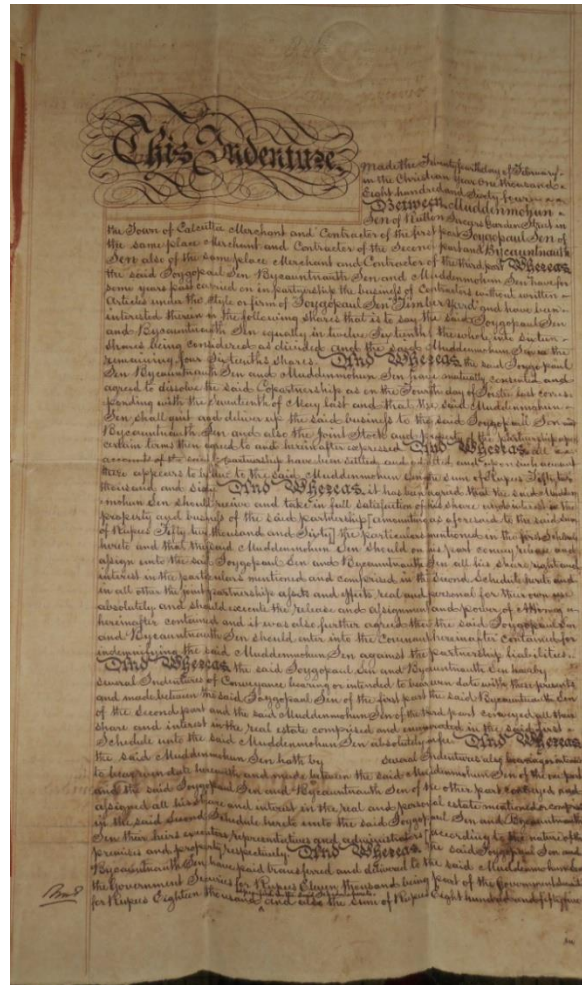 This Indenture
made the Twenty fourth day of February
in the Christian Year One thousand
Eight hundred and Sixty
Between Muddenmohun
Sen of Street in
the Town of Calcutta Merchant and Contractor of the first part Joygopaul Sen of
the same place Merchant and Contractor of the Second part and Bycauntnauth
Sen also of the same place Merchant and Contractor of the third part Whereas
the said Joygopaul Sen Bycauntnauth Sen and Muddenmohun Sen have for
some years past carried on in partnership the business of Contractors without written
Articles under the style or firm of Joygopaul Sen Timber Yard and have been
interested therein in the following shares that is to say the said Joygopaul Sen
and Bycauntnauth Sen equally in twelve Sixteenths the whole into sixteen
shares being considered as divided and the said Muddenmohun Sen in the
remaining four Sixteenths shares. And Whereas the said Joygopaul
Sen Bycauntnauth Sen and Muddenmohun Sen have mutually consented and
agreed to dissolve the said Copartnership as on the Fourth day of last corres-
ponding with the Seventeenth of May last and that the said Muddenmohun
Sen shall quit and deliver up the said business to the said Joygopaul Sen and
Bycauntnauth Sen and also the Joint Stock and of the partnership upon
certain terms then agreed to and hereinafter expressed And Whereas all
accounts of the said Copartnership have been settled and and upon such account
there appears to be due to the said Muddenmohun Sen the sum of Rupees Fifty
thousand and sixty And Whereas it has been agreed that the said Mudden-
mohun Sen should receive and take in full satisfaction of his share and interest in the
property and business of the said partnership amounting as aforesaid to the said sum
of Rupees Fifty thousand and Sixty the particulars mentioned in the first Schedule
hereto and that the said Muddenmohun Sen should on his part convey release and
assign unto the said Joygopaul Sen and Bycauntnauth Sen all his share right and
interest in the particulars mentioned and comprised in the Second Schedule hereto and
in all other the joint partnership assets and effects real and personal for their own use
absolutely and should execute the release and assignment and power of Attorney
hereinafter contained and it was also further agreed that the said Joygopaul Sen
and Bycauntnauth Sen should enter into the Covenant hereinafter contained for
indemnifying the said Muddenmohun Sen against the partnership liabilities.
And Whereas the said Joygopaul Sen and Bycauntnauth Sen have by
several Indentures of Conveyance bearing or intended to bear even date with these presents
and made between the said Joygopaul Sen of the first part the said Bycauntnauth Sen
of the second part and the said Muddenmohun Sen of the third part conveyed all their
share and interest in the real estate comprised and enumerated in the said first
Schedule unto the said Muddenmohun Sen absolutely And Whereas
the said Muddenmohun Sen hath by several Indentures also bearing or intended
to bear even date herewith and made between the said Muddenmohun Sen of the one part
and the said Joygopaul Sen and Bycauntnauth Sen of the other part conveyed and
assigned all his share and interest in the real and personal estate mentioned or comprised
in the said Second Schedule hereto unto the said Joygopaul Sen and Bycauntnauth
Sen their heirs executors representatives and administrators according to the nature of the
premises and property respectively And Whereas the said Joygopaul Sen and
Bycauntnauth Sen have paid transferred and delivered to the said Muddenmohun Sen
the Government Securities for Rupees Eleven thousand being part of the Government
for Rupees Eighteen thousand and also the sum of Rupees Eight hundred and fifty five